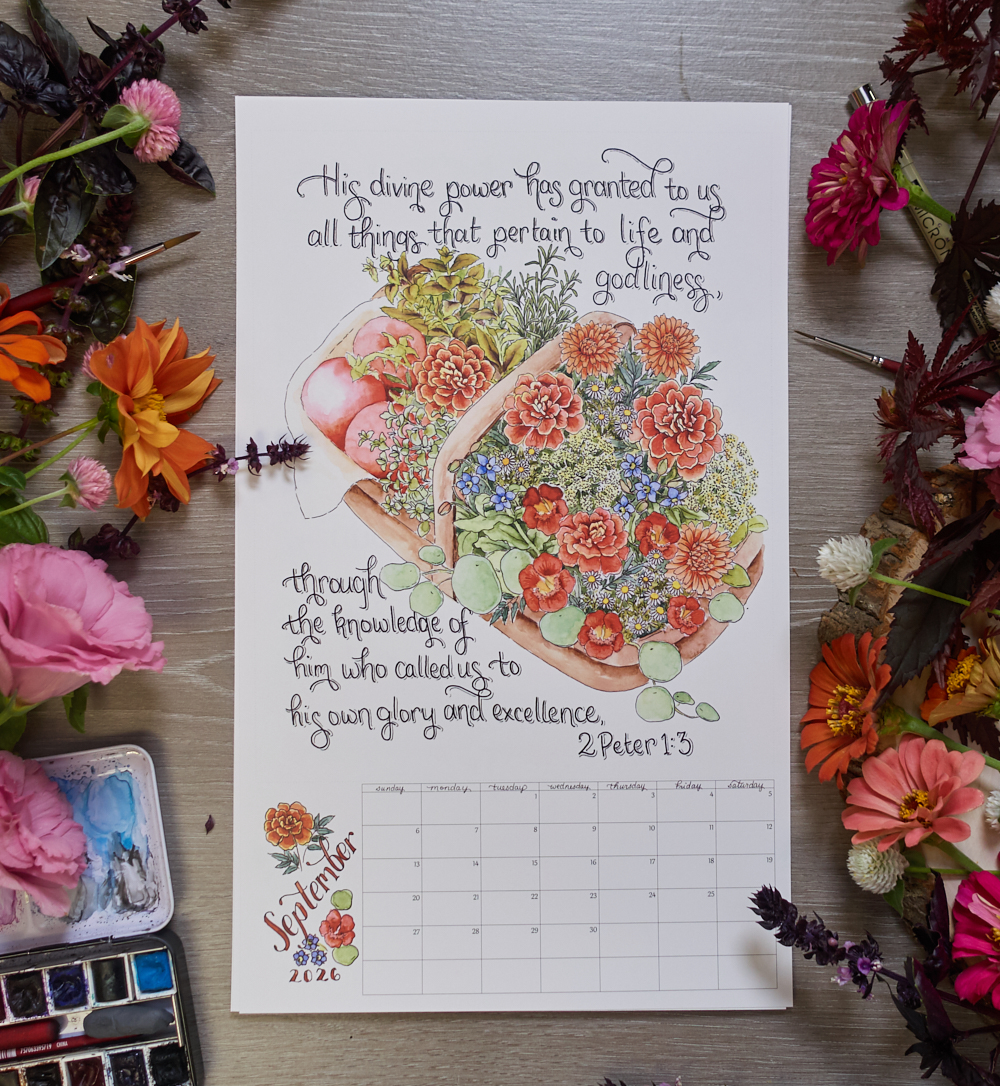 His divine power has granted to us
all things that pertain to life and
godliness,
through
the knowledge of
him who called us to
his own glory and excellence,
2 Peter 1:3
sunday monday tuesday wednesday thursday friday saturday
1 2 3 4 5
6 7 8 9 10 11 12
13 14 15 16 17 18 19
20 21 22 23 24 25
27 28 29 30
September
2026
MICRO